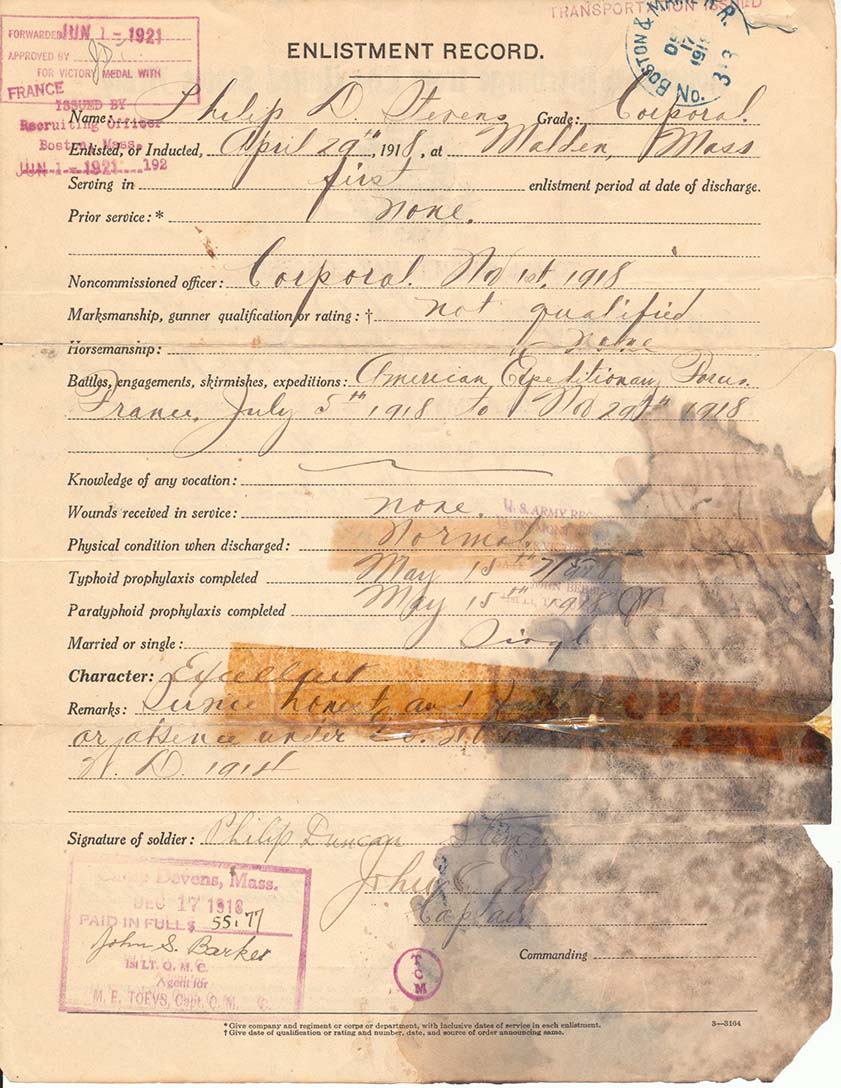 FORWARDED JUN 1 - 1921
APPROVED BY
FOR VICTORY MEDAL WITH
FRANCE
ISSUED BY
Recruiting Officer
Boston, Mass.
JUN 1 - 1921 192
TRANSPORTATION ISSUED
BOSTON & R.R.
17
ENLISTMENT RECORD.
Name: Philip D. Stevens Grade: Corporal.
Enlisted, or Inducted, April 29th, 1918, at Malden, Mass
Serving in first enlistment period at date of discharge.
Prior service:* none.
Noncommissioned officer: Corporal. 1st, 1918
Marksmanship, gunner qualification or rating: † not qualified
Horsemanship: none
Battles, engagements, skirmishes, expeditions: American Expeditionary Forces.
France, July 5th 1918 to 29th 1918
Knowledge of any vocation:
Wounds received in service: none.
Physical condition when discharged: Normal
Typhoid prophylaxis completed May 15th 1918
Paratyphoid prophylaxis completed May 15th 1918
Married or single: Singl
Character: Excellent
Remarks: honest and
or absence under
W. D. 1918
Signature of soldier: Philip Duncan Steven
John
Captain
Commanding
Camp Devens, Mass.
DEC 17 1918
PAID IN FULL $ 55.77
John S. Barker
1st LT. Q. M. C.
Agent for
M. E. TOEVS, Capt. Q. M. C.
TCM
U. S. ARMY
* Give company and regiment or corps or department, with inclusive dates of service in each enlistment.
† Give date of qualification or rating and number, date, and source of order announcing same.
3—3164